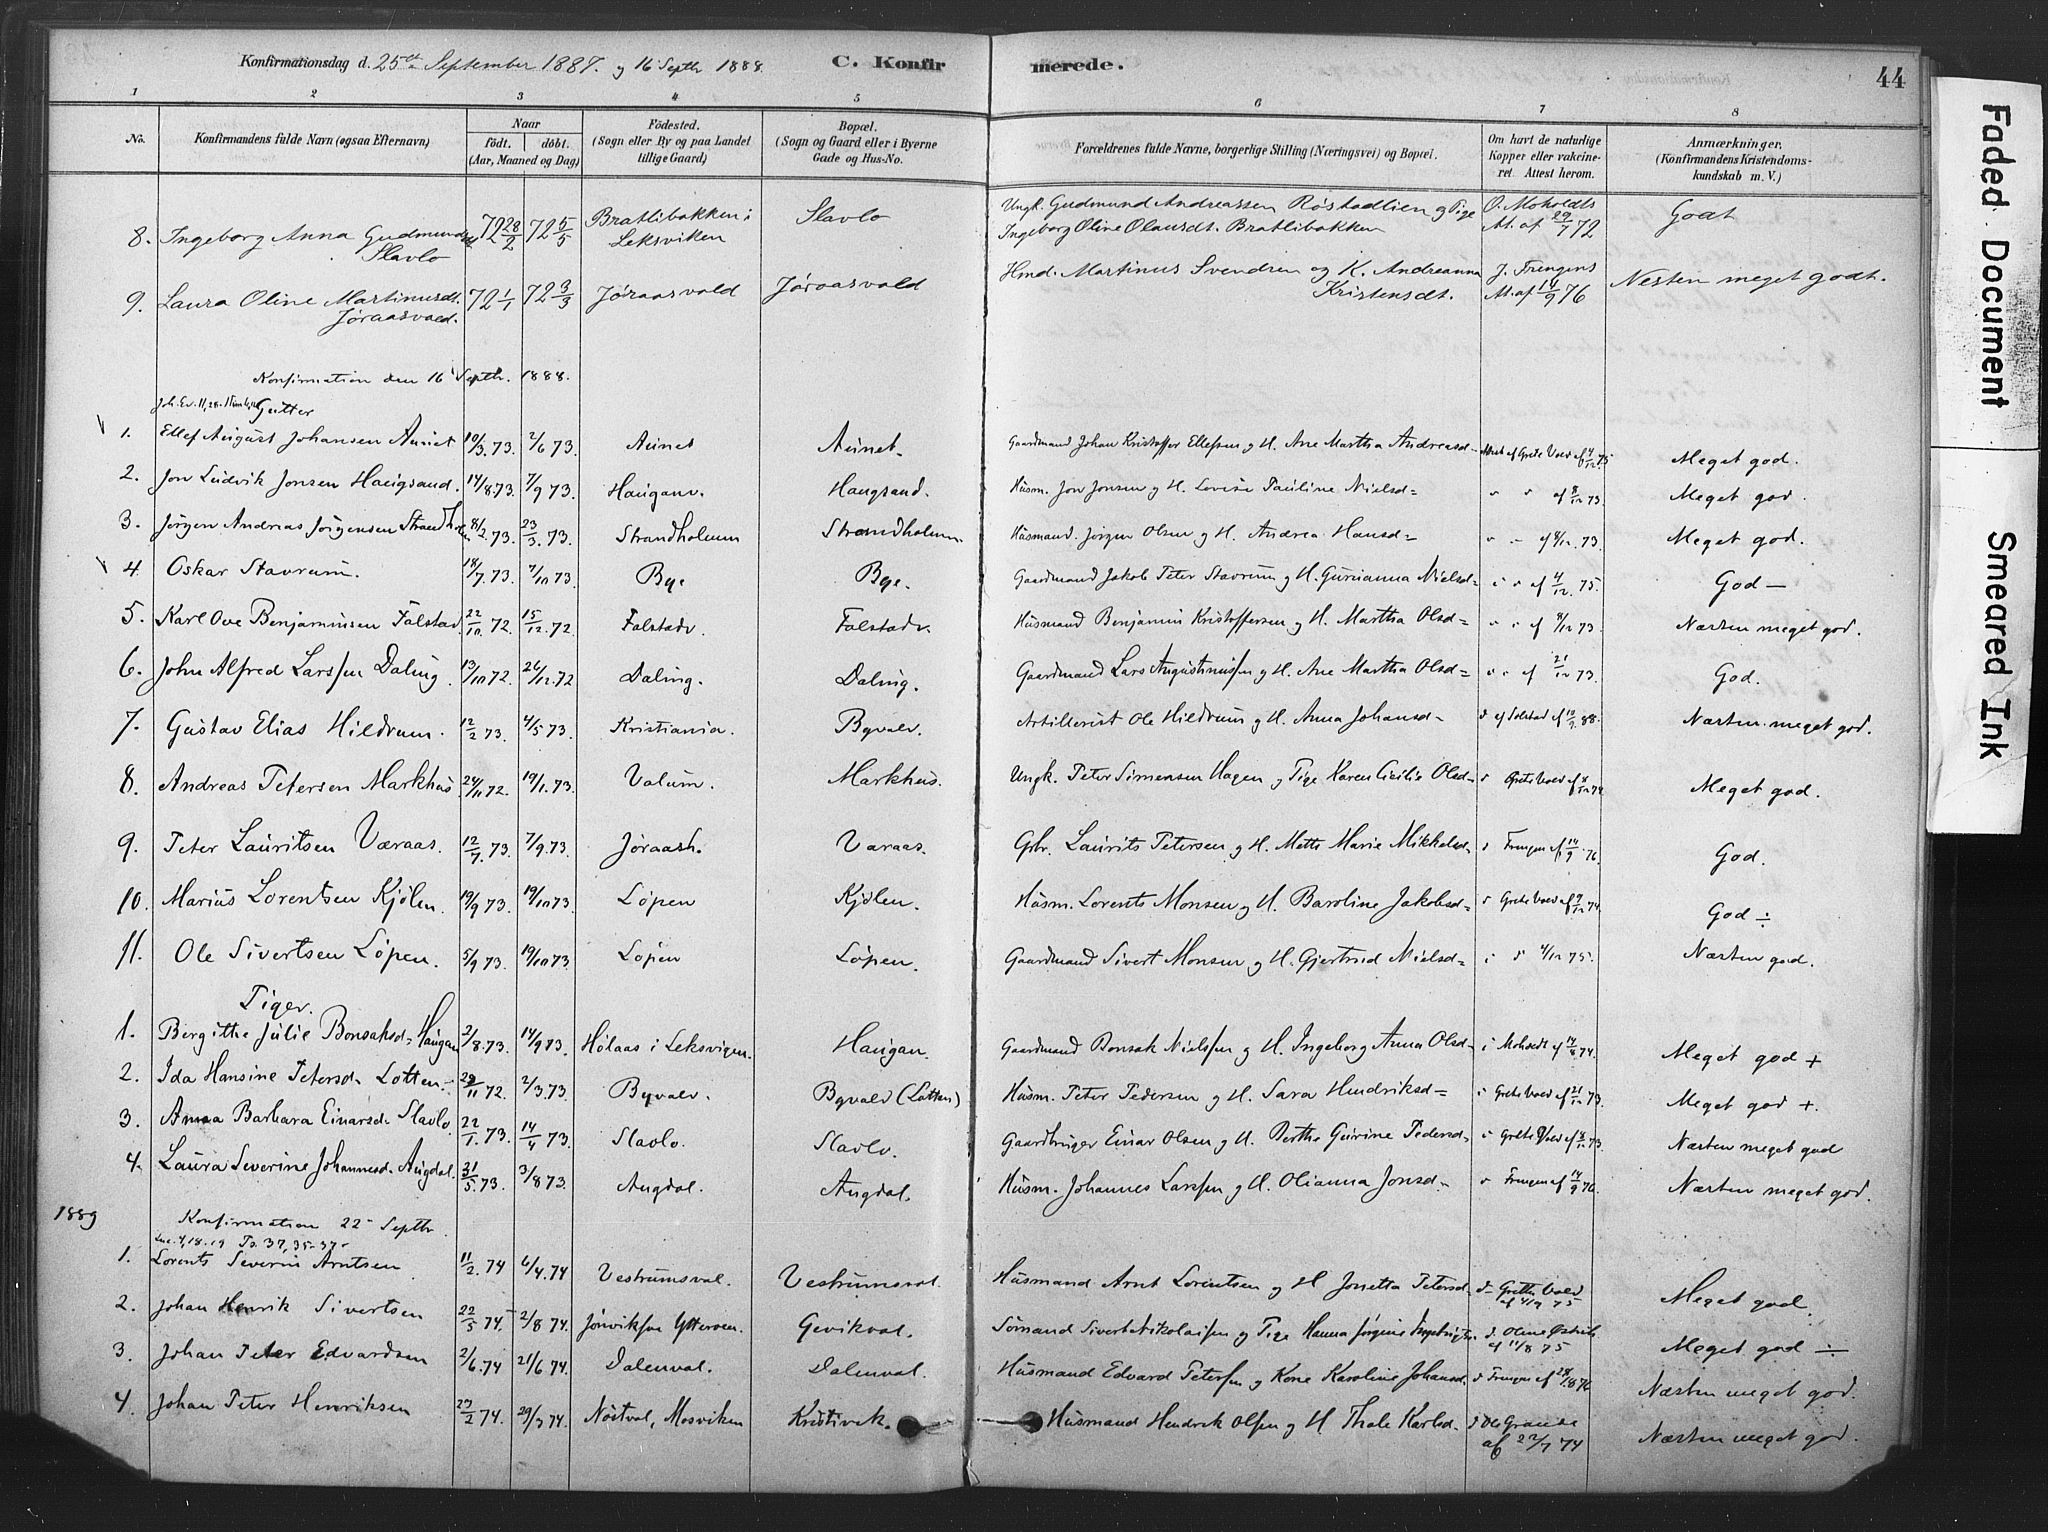 Konfirmationsdag d. 25de September 1887. og 16 Septbr 1888. C. Konfirmerede. 44
1 2 3 4 5 6 7 8
No. Konfirmandens fulde Navn (ogsaa Efternavn) Naar født. døbt. (Aar, Maaned og Dag) Fødested. (Sogn eller By og paa Landet tillige Gaard) Bopæl. (Sogn og Gaard eller i Byerne Gade og Hus-No. Forældrenes fulde Navne, borgerlige Stilling (Næringsvei) og Bopæl. Om havt de naturlige Kopper eller vakcineret. Attest herom. Anmærkninger. (Konfirmandens Kristendomskundskab m. V.)
8. Ingeborg Anna Gudmundsd. Slavlo 72 28/2 72 5/5 Bratlibakken i Leksviken Slavlo Ungk. Gudmund Andreassen Røstadlien og Pige Ingeborg Oline Olausdt. Bratlibakken O. Moholdts At. af 29/7 72 Godt
9. Laura Oline Martinusdt. Jøraasvald. 72 1/1 72 3/3 Jøraasvald Jøraasvald Hmd. Martinus Svendsen og K. Andreanna Kristensdt. J. Frengens At. af 14/9 76 Nesten meget godt.
Konfirmation den 16 Septbr. 1888.
Gutter
1. Ellef August Johansen Aunet 10/3 73 2/6 73 Aunet Aunet. Gaardmand Johan Kristoffer Ellefsen og H. Ane Martha Andreasd= Attest af Grete Vold af 4/12 75 Meget god.
2. Jon Ludvik Jonsen Haugsand. 14/8 73. 7/9 73. Haugan. Haugsand. Husm. Jon Jonsen og H. Lovise Pauline Nielsd= " " af 8/12 73. Meget god.
3. Jørgen Andreas Jørgensen Strandholm 8/2 73. 23/3 73. Strandholmm Strandholmm. Husmand. Jørgen Olsen og H. Andrea Hansd= " " af 8/12 73. Meget god.
4. Oskar Stavrum. 18/7 73. 7/10 73. Bye Bye. Gaardmand Jakob Peter Stavrum og H. Gurianna Nielsd= " " af 4/12 75. God —
5. Karl Ove Benjaminsen Falstad. 22/10 72. 15/12 72. Falstadv. Falstadv. Husmand Benjamin Kristoffersen og H. Martha Olsd= " " af 8/12 73. Næsten meget god.
6. John Alfred Larssen Daling. 13/10 72. 26/12 72 Daling. Daling. Gaardmand Lars Augustinussen og H. Ane Martha Olsd= " " af 21/12 73. God.
7. Gustav Elias Hildrum. 12/2 73. 4/5 73. Kristiania. Byvald. Artillerist Ole Hildrum og H. Anna Johansd= d af Solstad af 10/9 88. Næsten meget god.
8. Andreas Petersen Markhus. 24/11 72. 19/1 73. Valum. Markhus. Ungk. Peter Simensen Hagen og Pige Karen Cecilie Olsd= d Grete Vold af 8/12 74. Meget god.
9. Peter Lauritsen Væraas. 12/7 73. 7/9 73. Jøraash. Varaas. Gbr. Laurits Petersen og H. Mette Marie Mikkelsd= d Frengen af 14/9 76. God.
10. Marius Lorentsen Kjølen. 19/9 73. 19/10 73. Løpen Kjølen. Husm. Lorents Monsen og H. Baroline Jakobsd= d Grete Vold af 9/12 74. God ÷
11. Ole Sivertsen Løpen. 5/9 73. 19/10 73. Løpen Løpen. Gaardmand Sivert Monsen og H. Gjertrud Nielsd= 4/12 75. Næsten god.
Piger.
1. Bergithe Julie Bonsaksd= Haugan 2/8 73. 14/9 73. Hølaas i Leksvigen Haugan. Gaardmand Bonsak Nielsen og H. Ingeborg Anna Olsd= Moholdt 74. Meget god +
2. Ida Hansine Petersd= Lotten. 29/11 72. 2/3 73. Byvald. Byvald (Lotten) Husm. Peter Pedersen og H. Sara Hendriksd= Grete Vold af 21/12 73. Meget god +.
3. Anna Barbara Einarsd= Slavlo. 22/1 73. 14/4 73. Slavlo. Slavlo. Gaardbruger Einar Olsen og H. Berthe Gurine Pedersd= Grete Vold af 8/12 73. Næsten meget god
4. Laura Severine Johannesd= Augdal. 31/5 73. 3/8 73. Augdal. Augdal. Husm. Johannes Larssen og H. Olianna Jonsd= " Frengen af 14/9 76. Næsten meget god.
1889 Konfirmation 22 Septbr
Luc. 4,18-19 Ps. 37, 35-37
1. Lorents Severin Arntsen 11/2 74 6/4 74 Vestrumsval. Vestrumsval. Husmand Arnt Lorentsen og H Jonetta Petersd. d Grethe Vold af 4/12 75 Meget god.
2. Johan Henrik Sivertsen 22/5 74. 2/8 74. Jønviksve Ytterøen. Gevikval. Sømand Sivert Nikolaisen og Pige Hanna Jørgine d. Oline af 11/8 75 Meget god ÷
3. Johan Peter Edvardsen 2/6 74 21/6 74. Dalenval. Dalenval. Husmand Edvard Petersen og Kone Karoline Johansd. d Frengen af 76 Næsten meget god.
4. Johan Peter Henriksen 23/2 74. 29/3 74. Nøstval, Mosviken Kristivek. Husmand Hendrik Olsen og H Thale Karlsd. d Ole Grande af 22/7 74 Næsten meget god.
Faded Document
Smeared Ink